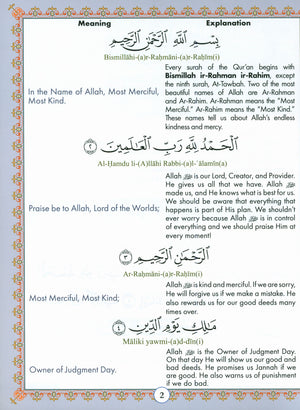 Meaning Explanation
بِسْمِ ٱللَّهِ ٱلرَّحْمَٰنِ ٱلرَّحِيمِ
Bismillāhi-(a)r-Raḥmāni-(a)r-Raḥīm(i)
In the Name of Allah, Most Merciful,
Most Kind.
Every surah of the Qur'an begins with
Bismillah ir-Rahman ir-Rahim, except
the ninth surah, At-Tawbah. Two of the most
beautiful names of Allah are Ar-Rahman
and Ar-Rahim. Ar-Rahman means the "Most
Merciful." Ar-Rahim means the "Most Kind."
These names tell us about Allah's endless
kindness and mercy.
ٱلْحَمْدُ لِلَّهِ رَبِّ ٱلْعَٰلَمِينَ ٢
Al-Ḥamdu li-(A)llāhi Rabbi-(a)l-'ālamīn(a)
Praise be to Allah, Lord of the Worlds;
Allah ﷻ is our Lord, Creator, and Provider.
He gives us all that we have. Allah ﷻ
made us, and He knows what is best for us.
We should be aware that everything that
happens is part of His Plan. We shouldn't
ever worry because Allah ﷻ is in control
of everything and we should praise Him at
every moment!
ٱلرَّحْمَٰنِ ٱلرَّحِيمِ ٣
Ar-Raḥmāni-(a)r-Raḥīm(i)
Most Merciful, Most Kind;
Allah ﷻ is kind and merciful. If we are sorry,
He will forgive us if we make a mistake. He
also rewards us for our good deeds many
times over.
مَٰلِكِ يَوْمِ ٱلدِّينِ ٤
Māliki yawmi-(a)d-dīn(i)
Owner of Judgment Day.
Allah ﷻ is the Owner of Judgment Day.
On that day He will show us our good and
bad deeds. He promises us Jannah if we
are good. He also warns us of punishment
if we do bad.
2